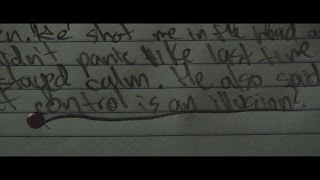 en he shot me in the head a
idn't panic like last time
stayed calm. He also said
t control is an illusion.